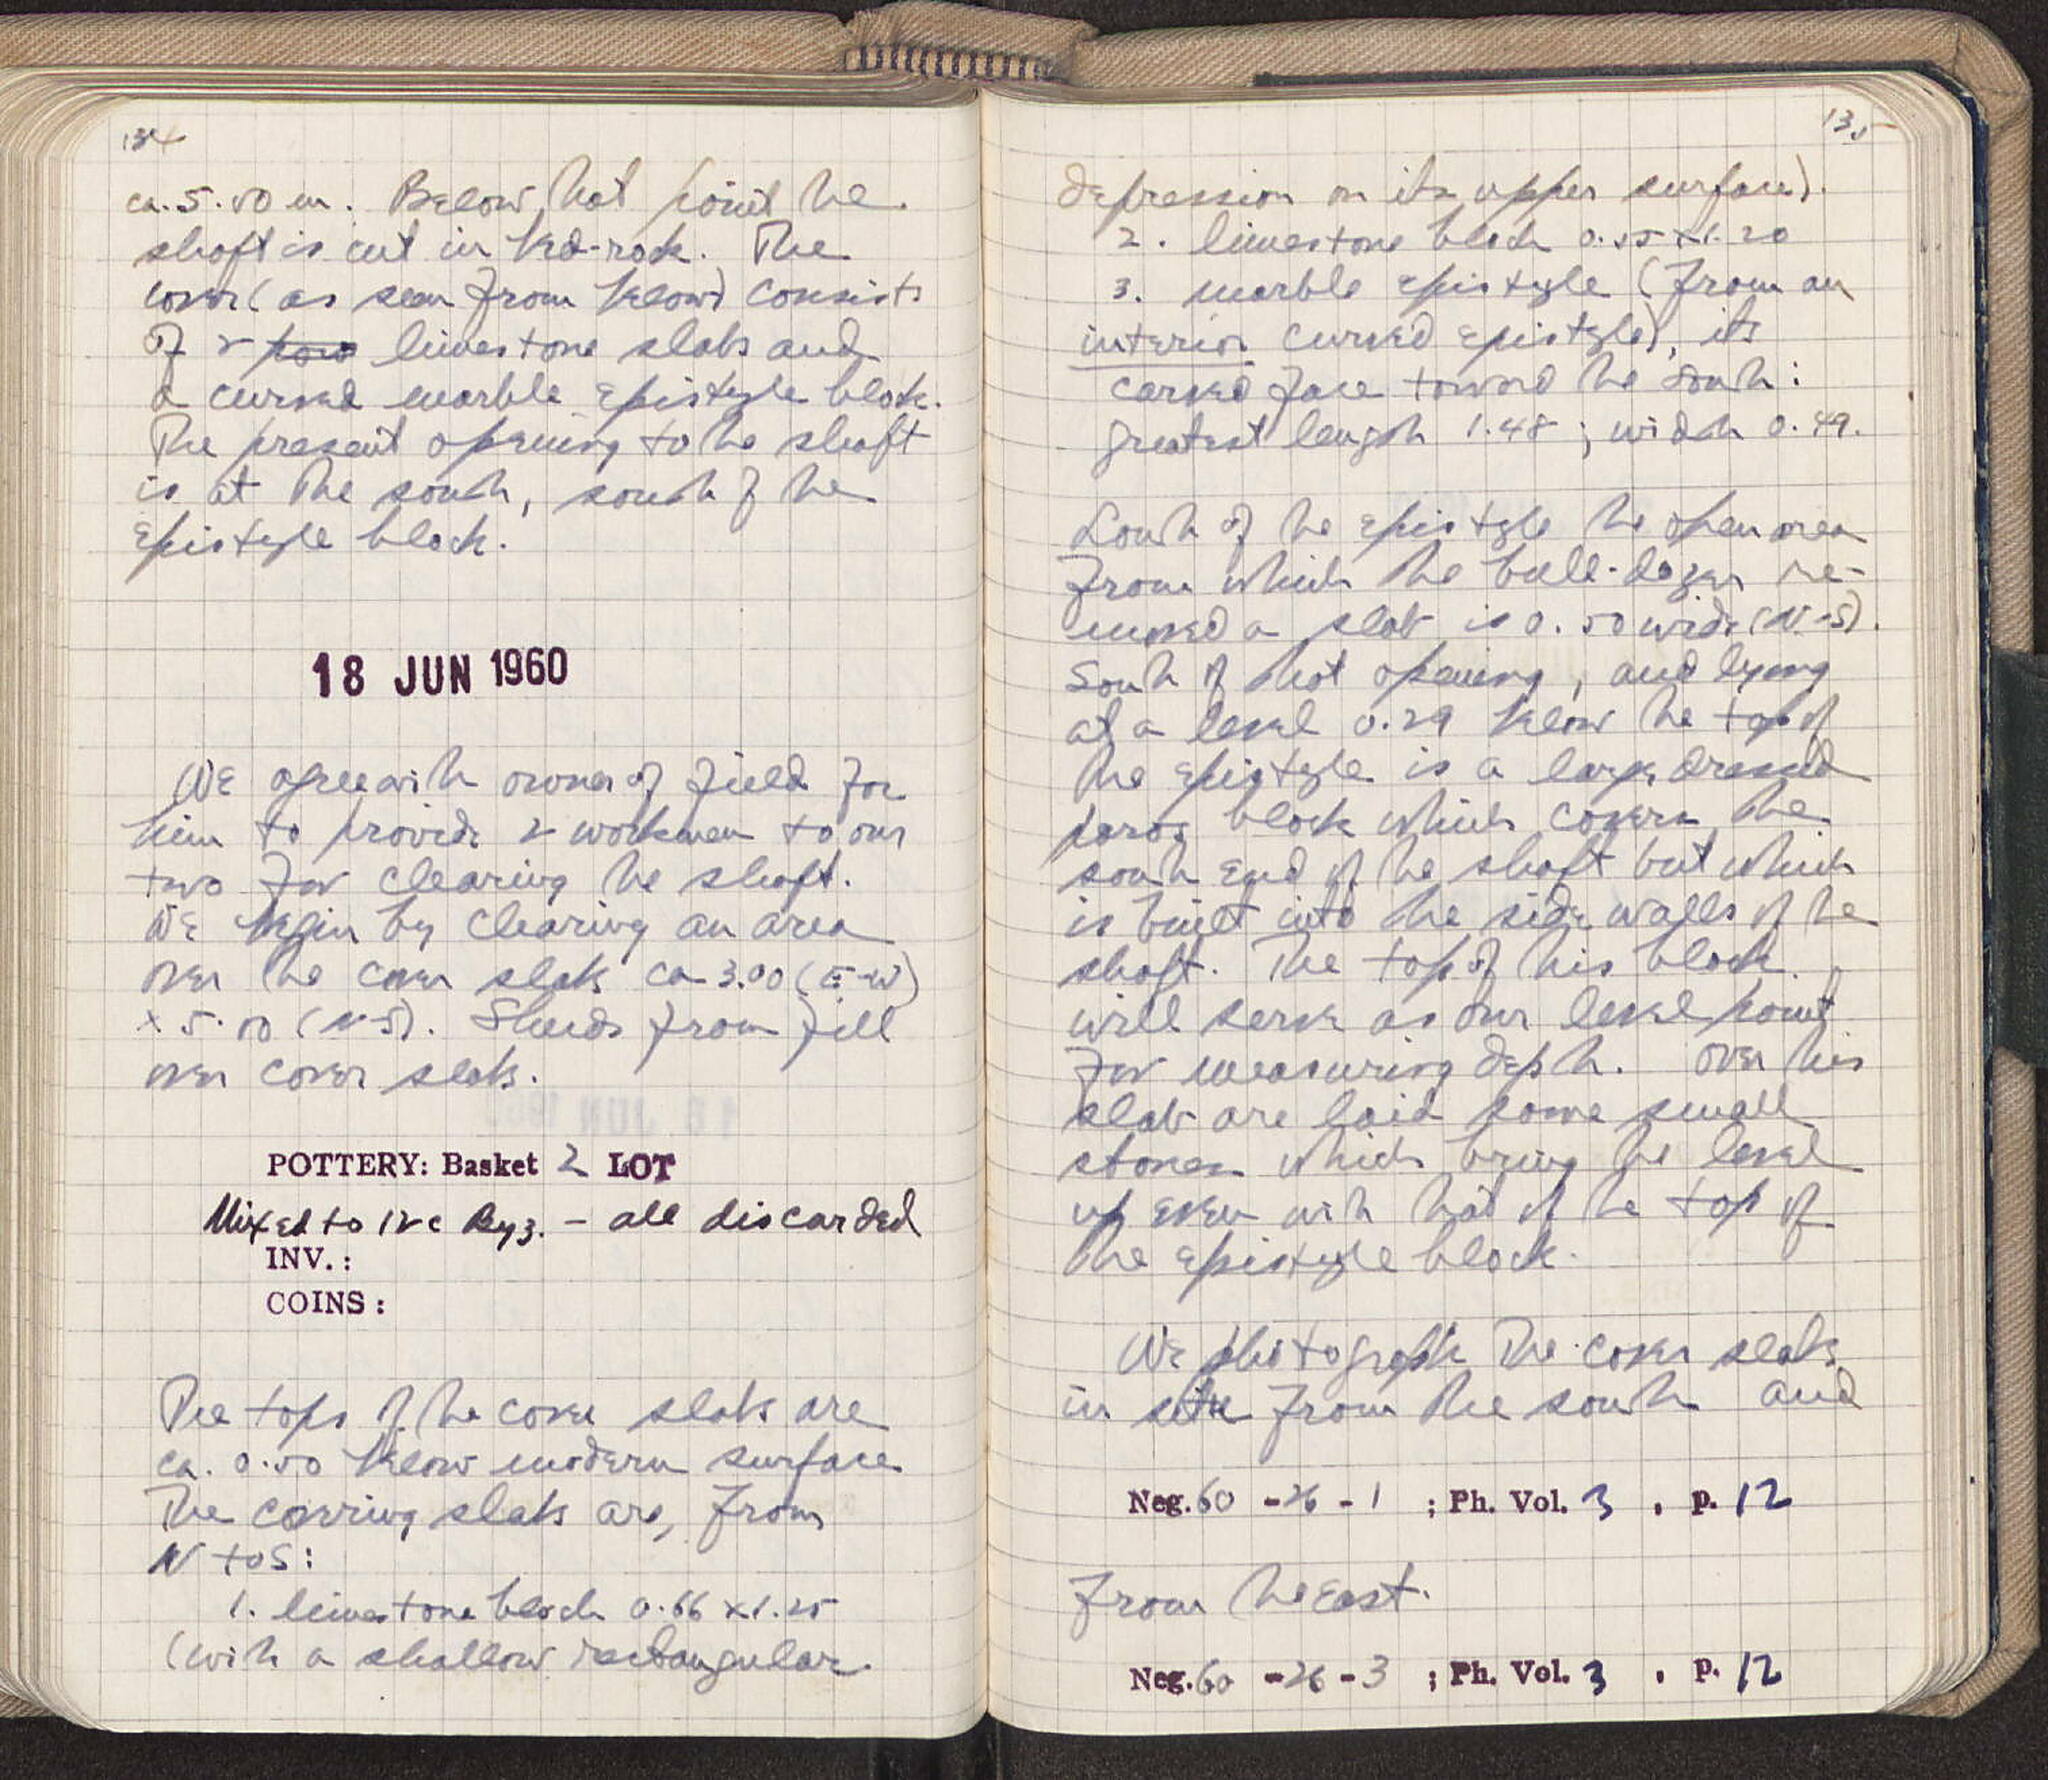 134
ca. 5.00 m. Below that point the
shaft is cut in bed-rock. The
cover (as seen from below) consists
of 2 poros limestone slabs and
a curved marble epistyle block.
The present opening to the shaft
is at the south, south of the
epistyle block.
18 JUN 1960
We agree with owner of field for
him to provide 2 workmen to our
two for clearing the shaft.
We begin by clearing an area
over the cover slabs ca 3.00 (E-W)
x 5.00 (N-S). Sherds from fill
over cover slabs.
POTTERY: Basket 2 LOT
Mixed to 12 c Byz. - all discarded
INV.:
COINS:
The tops of the cover slabs are
ca. 0.50 below modern surface
The covering slabs are, from
N to S:
1. limestone block 0.66 x 1.25
(with a shallow rectangular
135
depression on its upper surface).
2. limestone block 0.55 x 1.20
3. marble epistyle (from an
interior curved epistyle), its
carved face toward the south:
greatest length 1.48; width 0.49.
South of the epistyle the open area
from which the bull-dozer re-
moved a slab is 0.50 wide (N-S).
South of that opening, and lying
at a level 0.29 below the top of
the epistyle is a large dressed
poros block which covers the
south end of the shaft but which
is built into the side walls of the
shaft. The top of this block
will serve as our level point
for measuring depth. Over this
slab are laid some small
stones which bring the level
up even with that of the top of
the epistyle block.
We photograph the cover slabs
in situ from the south and
Neg. 60 -26 - 1 ; Ph. Vol. 3 , p. 12
from the east.
Neg. 60 -26 - 3 ; Ph. Vol. 3 , p. 12